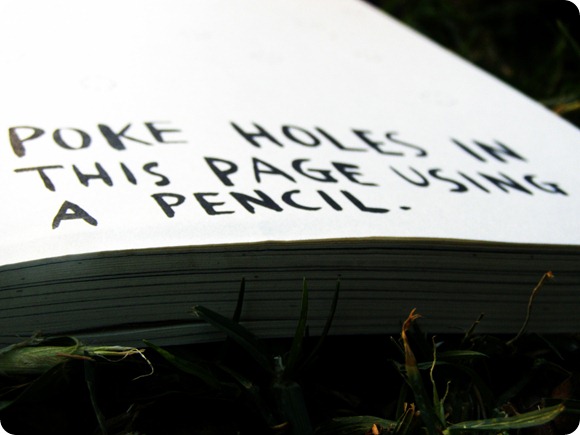 POKE HOLES IN
THIS PAGE USING
A PENCIL.